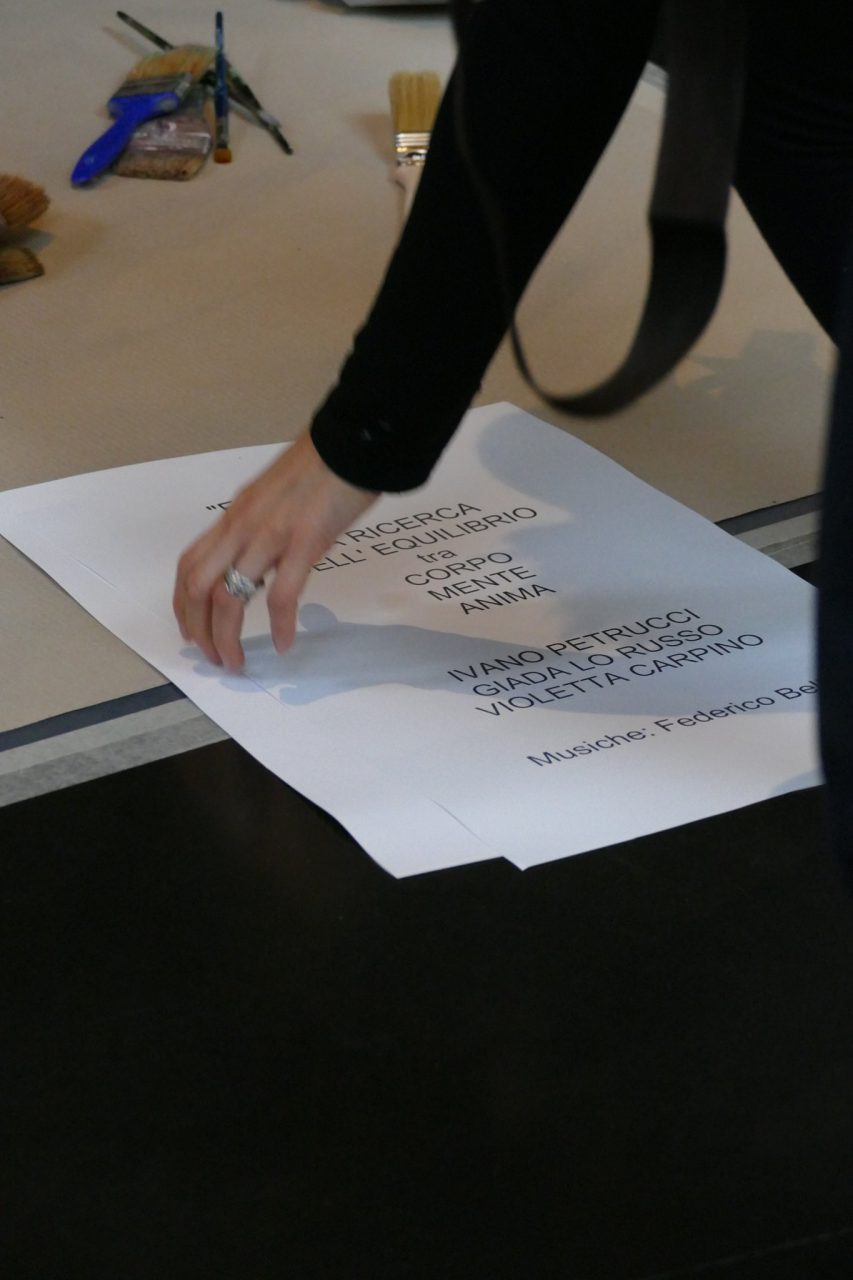 RICERCA
ELL' EQUILIBRIO
tra
CORPO
MENTE
ANIMA
IVANO PETRUCCI
GIADA LO RUSSO
VIOLETTA CARPINO
Musiche: Federico Bel